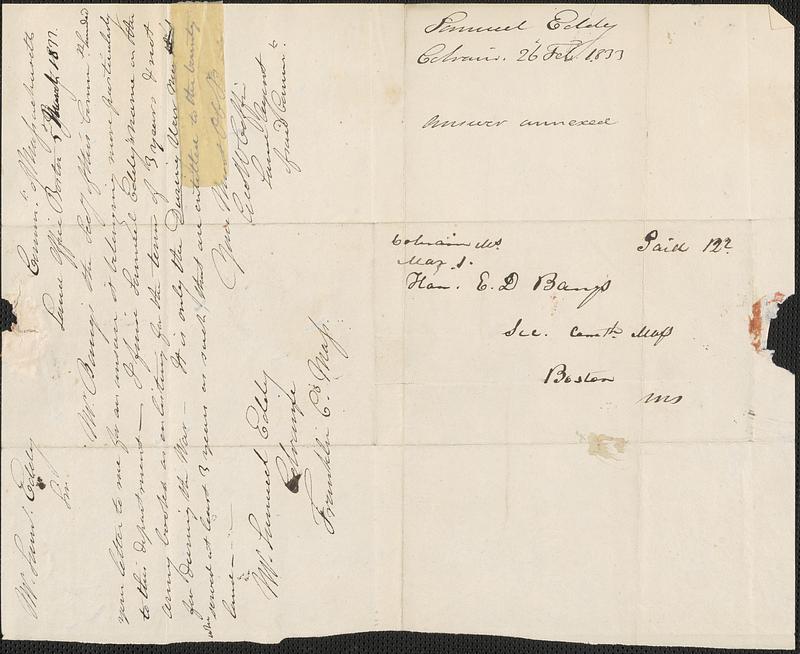 Samuel Eddy
Colrain. 26 Feb. 1833
Answer annexed
Colrain Ms.
Mar. 1.
Paid 12½
Hon. E. D Bangs
Sec. Comth. Mass
Boston
Ms
Comm. of Massachusetts
Land Office Boston 5 March 1833.
Mr. Saml. Eddy
Sir.
Mr Bangs the Secy of this Comm. has handed
your letter to me for an answer, it belonging more particularly
to this department — I find Samuel Eddy's name in the
army books as enlisting for the term of 3 years & not
for during the War — It is only the During War men &
who served at least 3 years as such, that are entitled to the bounty
land —
Your
Geo W Coffin
Land Agent
of said Comm.
Mr. Samuel Eddy
Colraine
Franklin Co. Mass.